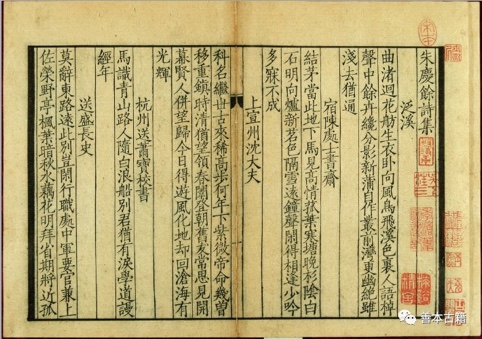 朱慶餘詩集
泛溪
曲渚迴花舫生衣卧向風鳥飛溪色裏人語棹
聲中餘卉纔分影新蒲自作叢前灣更幽絕雖
淺去猶通
宿陳處士書齋
結茅當此地下馬見高情菰葉寒塘晚杉陰白
石明向爐新茗色隔雪遠鐘聲閑得相逢少吟
多寐不成
上宣州沈大夫
科名繼世古來稀高步何年下紫微帝命幾曾
移重鎮時清猶望領春闈登朝舊友常思見開
幕賢人併望歸今日得遊風化地却回滄海有
光輝
杭州送蕭寶校書
馬識青山路人隨白浪船別君猶有淚學道謾
經年
送盛長史
莫辭東路遠此別豈閑行職處中軍要官兼上
佐榮野亭楓葉暗秋水藕花明拜省期將近孤
善本古籍